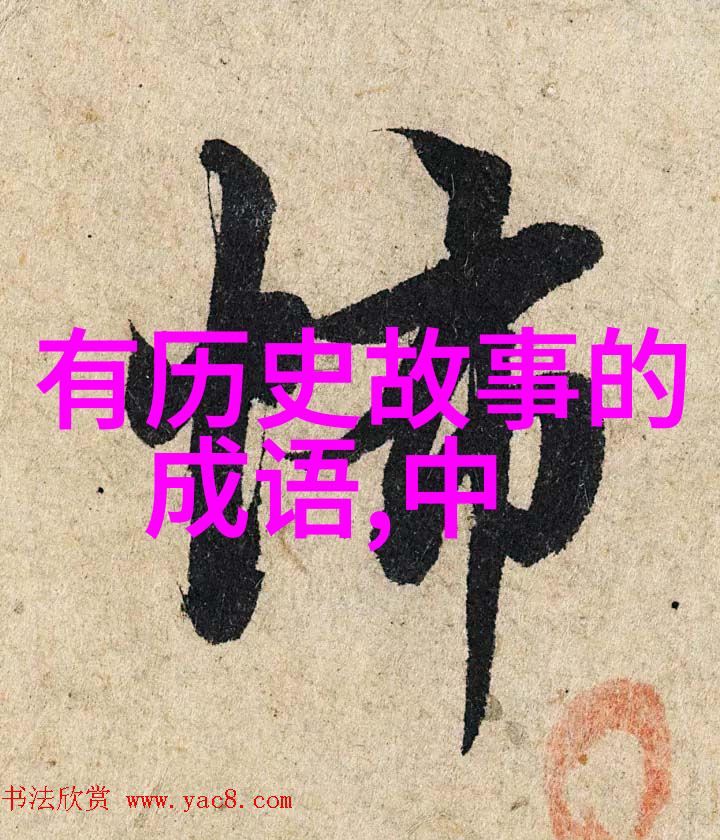 怖
有历史故事的
成语,中
书法欣赏 www.yac8.com